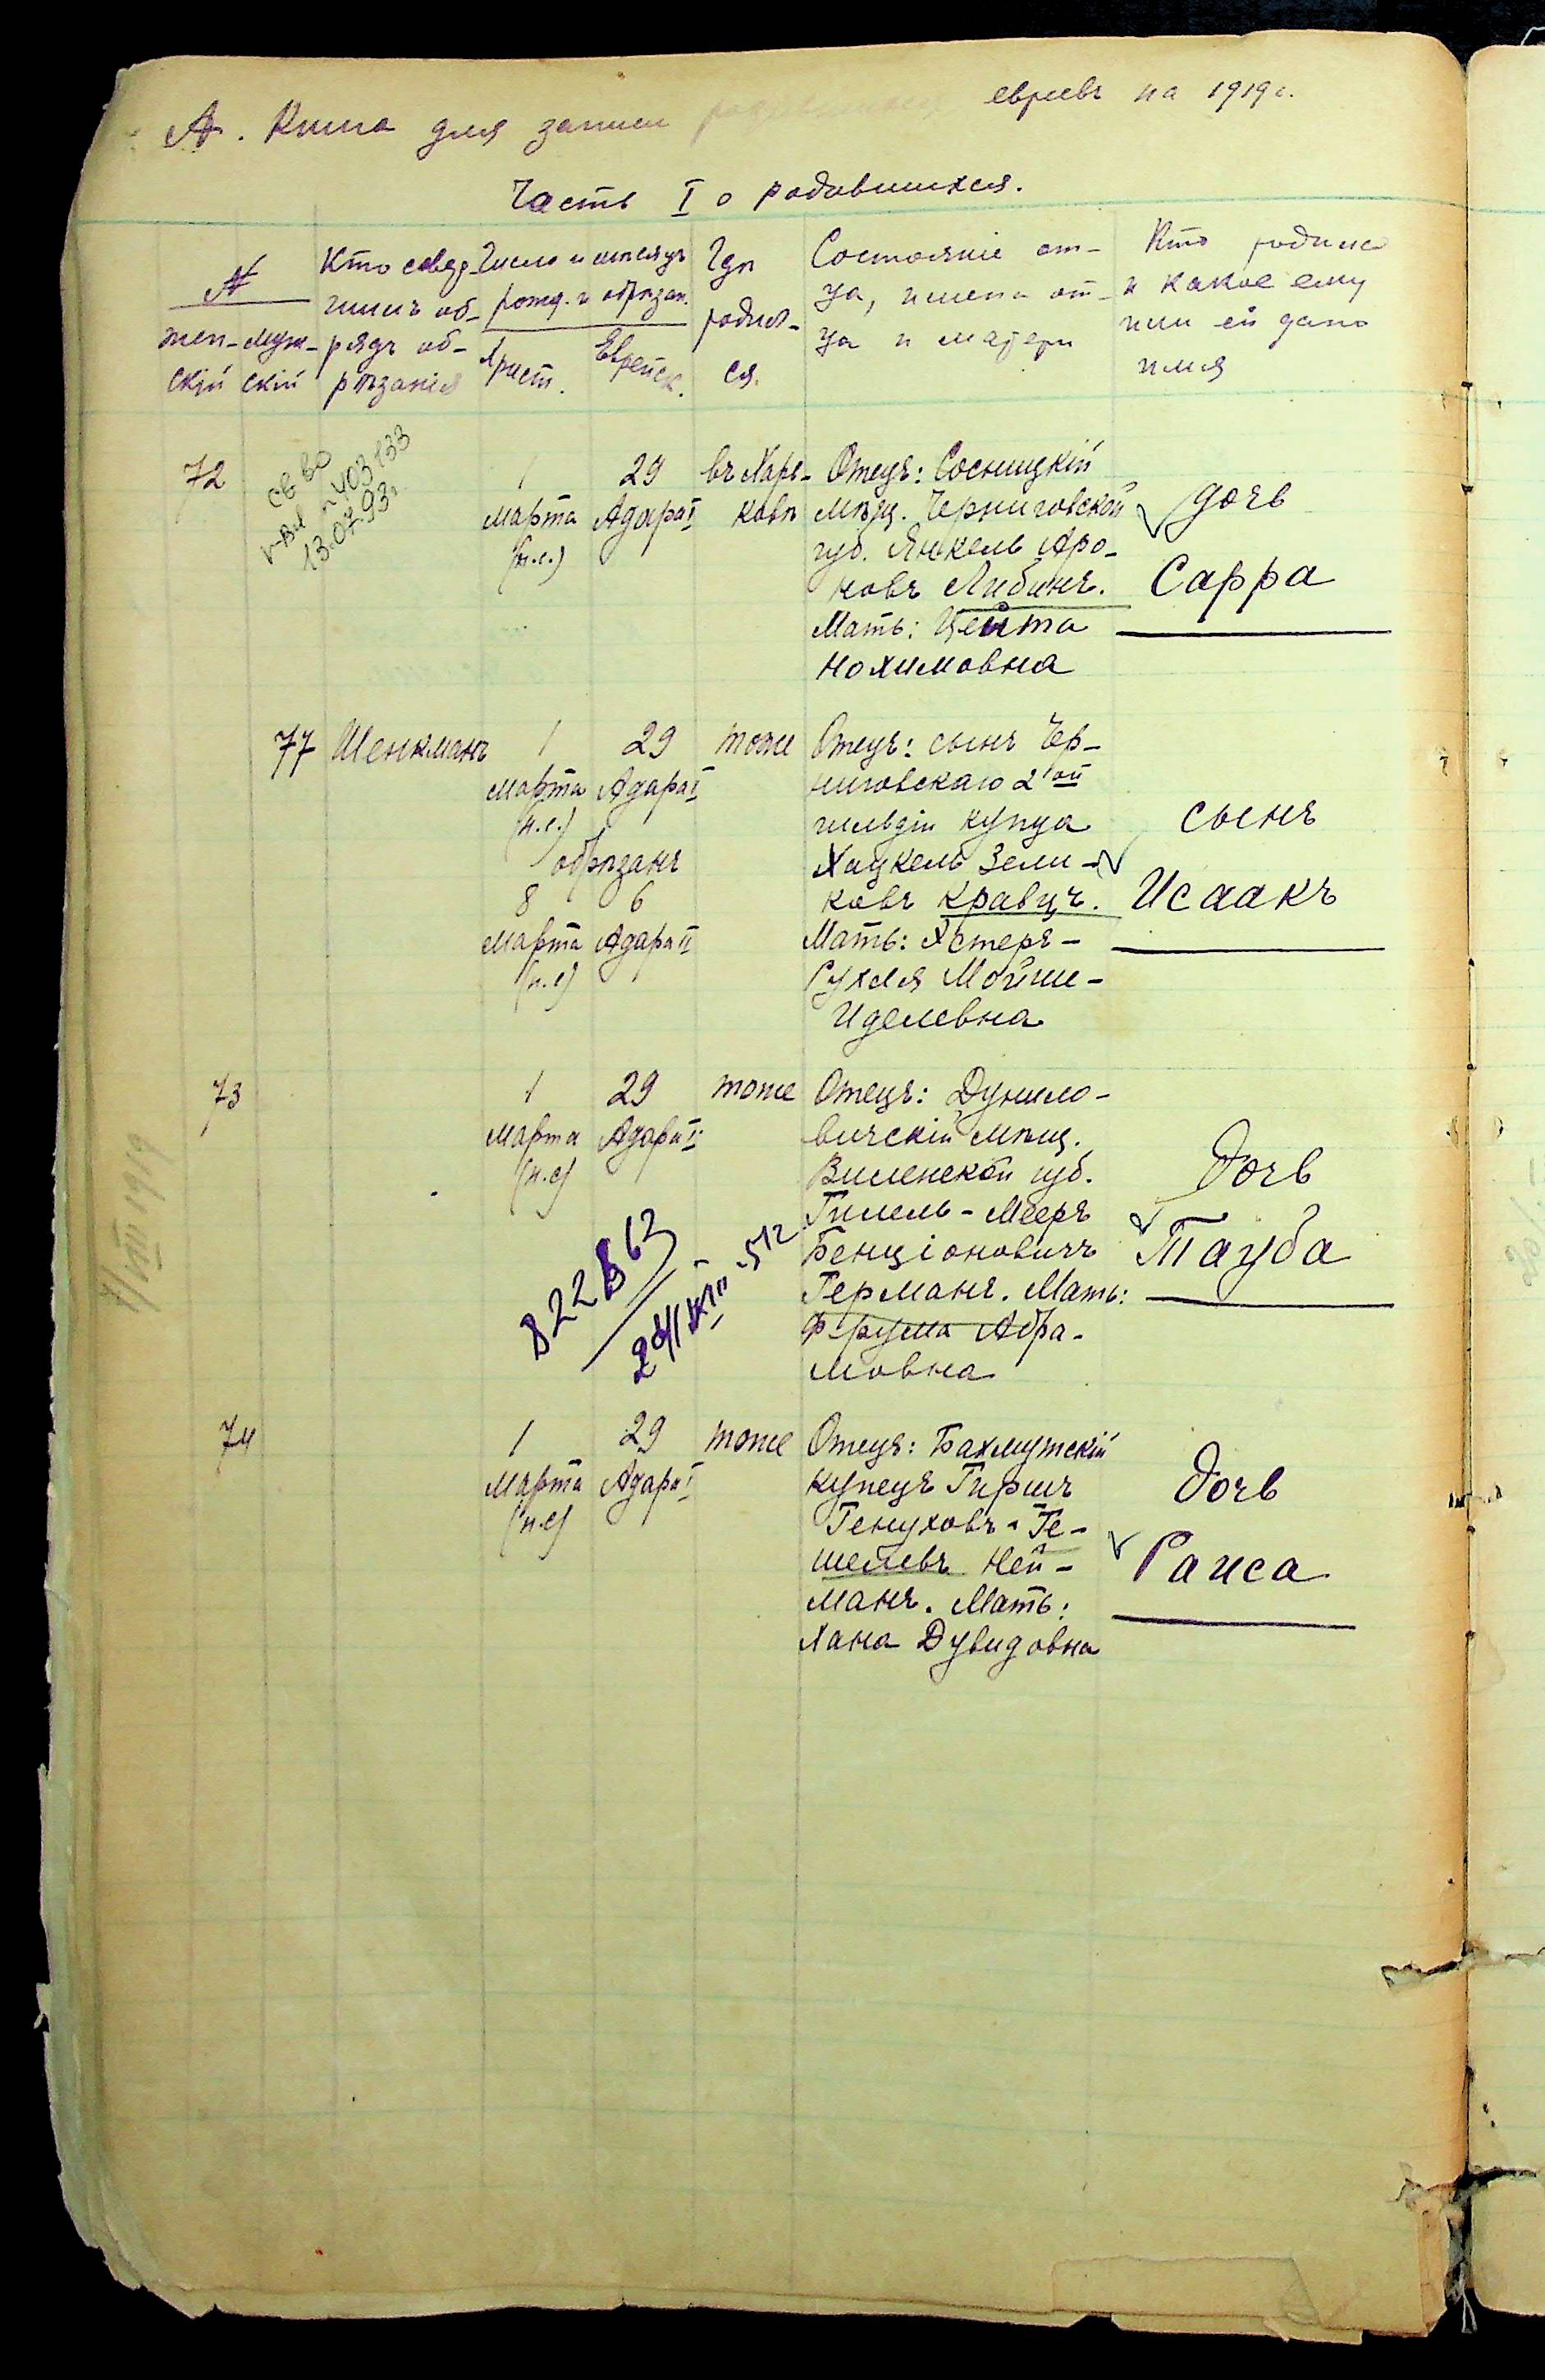 А. Книга для записи родившихся евреевъ на 1919 г.
Часть I о родившихся.
№
жен-
скій
муж-
скій
Кто совер-
шилъ об-
рядъ об-
рѣзанія
Число и мѣсяцъ
рожд. и обрѣзан.
Христ.
Еврейск.
Гдѣ
родил-
ся.
Состояніе от-
ца, имена от-
ца и матери
Кто родился
и какое ему
или ей дано
имя
72
св во
403133
13.07.93г
1
Марта
(н.с.)
29
Адара I
въ Харь-
ковѣ
Отецъ: Сосницкій
мѣщ. Черниговской
губ. Янкель Аро-
новъ Либинъ.
Мать: Цейта
Нохимовна
дочь
Сарра
77
Шенкманъ
1
Марта
(н.с.)
29
Адара I
обрѣзанъ
8
Марта
(н.с)
6
Адара II
тоже
Отецъ: сынъ Чер-
ниговскаго 2ой
гильдіи купца
Хацкель Зели-
ковъ Кравецъ.
Мать: Эстеръ-
Рухля Мойше-
Иделевна
сынъ
Исаакъ
73
1
Марта
(н.с)
29
Адара I
тоже
Отецъ: Дунило-
вичскій мѣщ.
Виленской губ.
Гилель-Мееръ
Бенціоновичъ
Германъ. Мать:
Фрума Абра-
мовна
дочь
Тауба
74
1
Марта
(н.с)
29
Адара I
тоже
Отецъ: Бахмутскій
купецъ Гиршъ
Генуховъ-Ге-
шелевъ Ней-
манъ. Мать:
Хана Дувидовна
дочь
Раиса